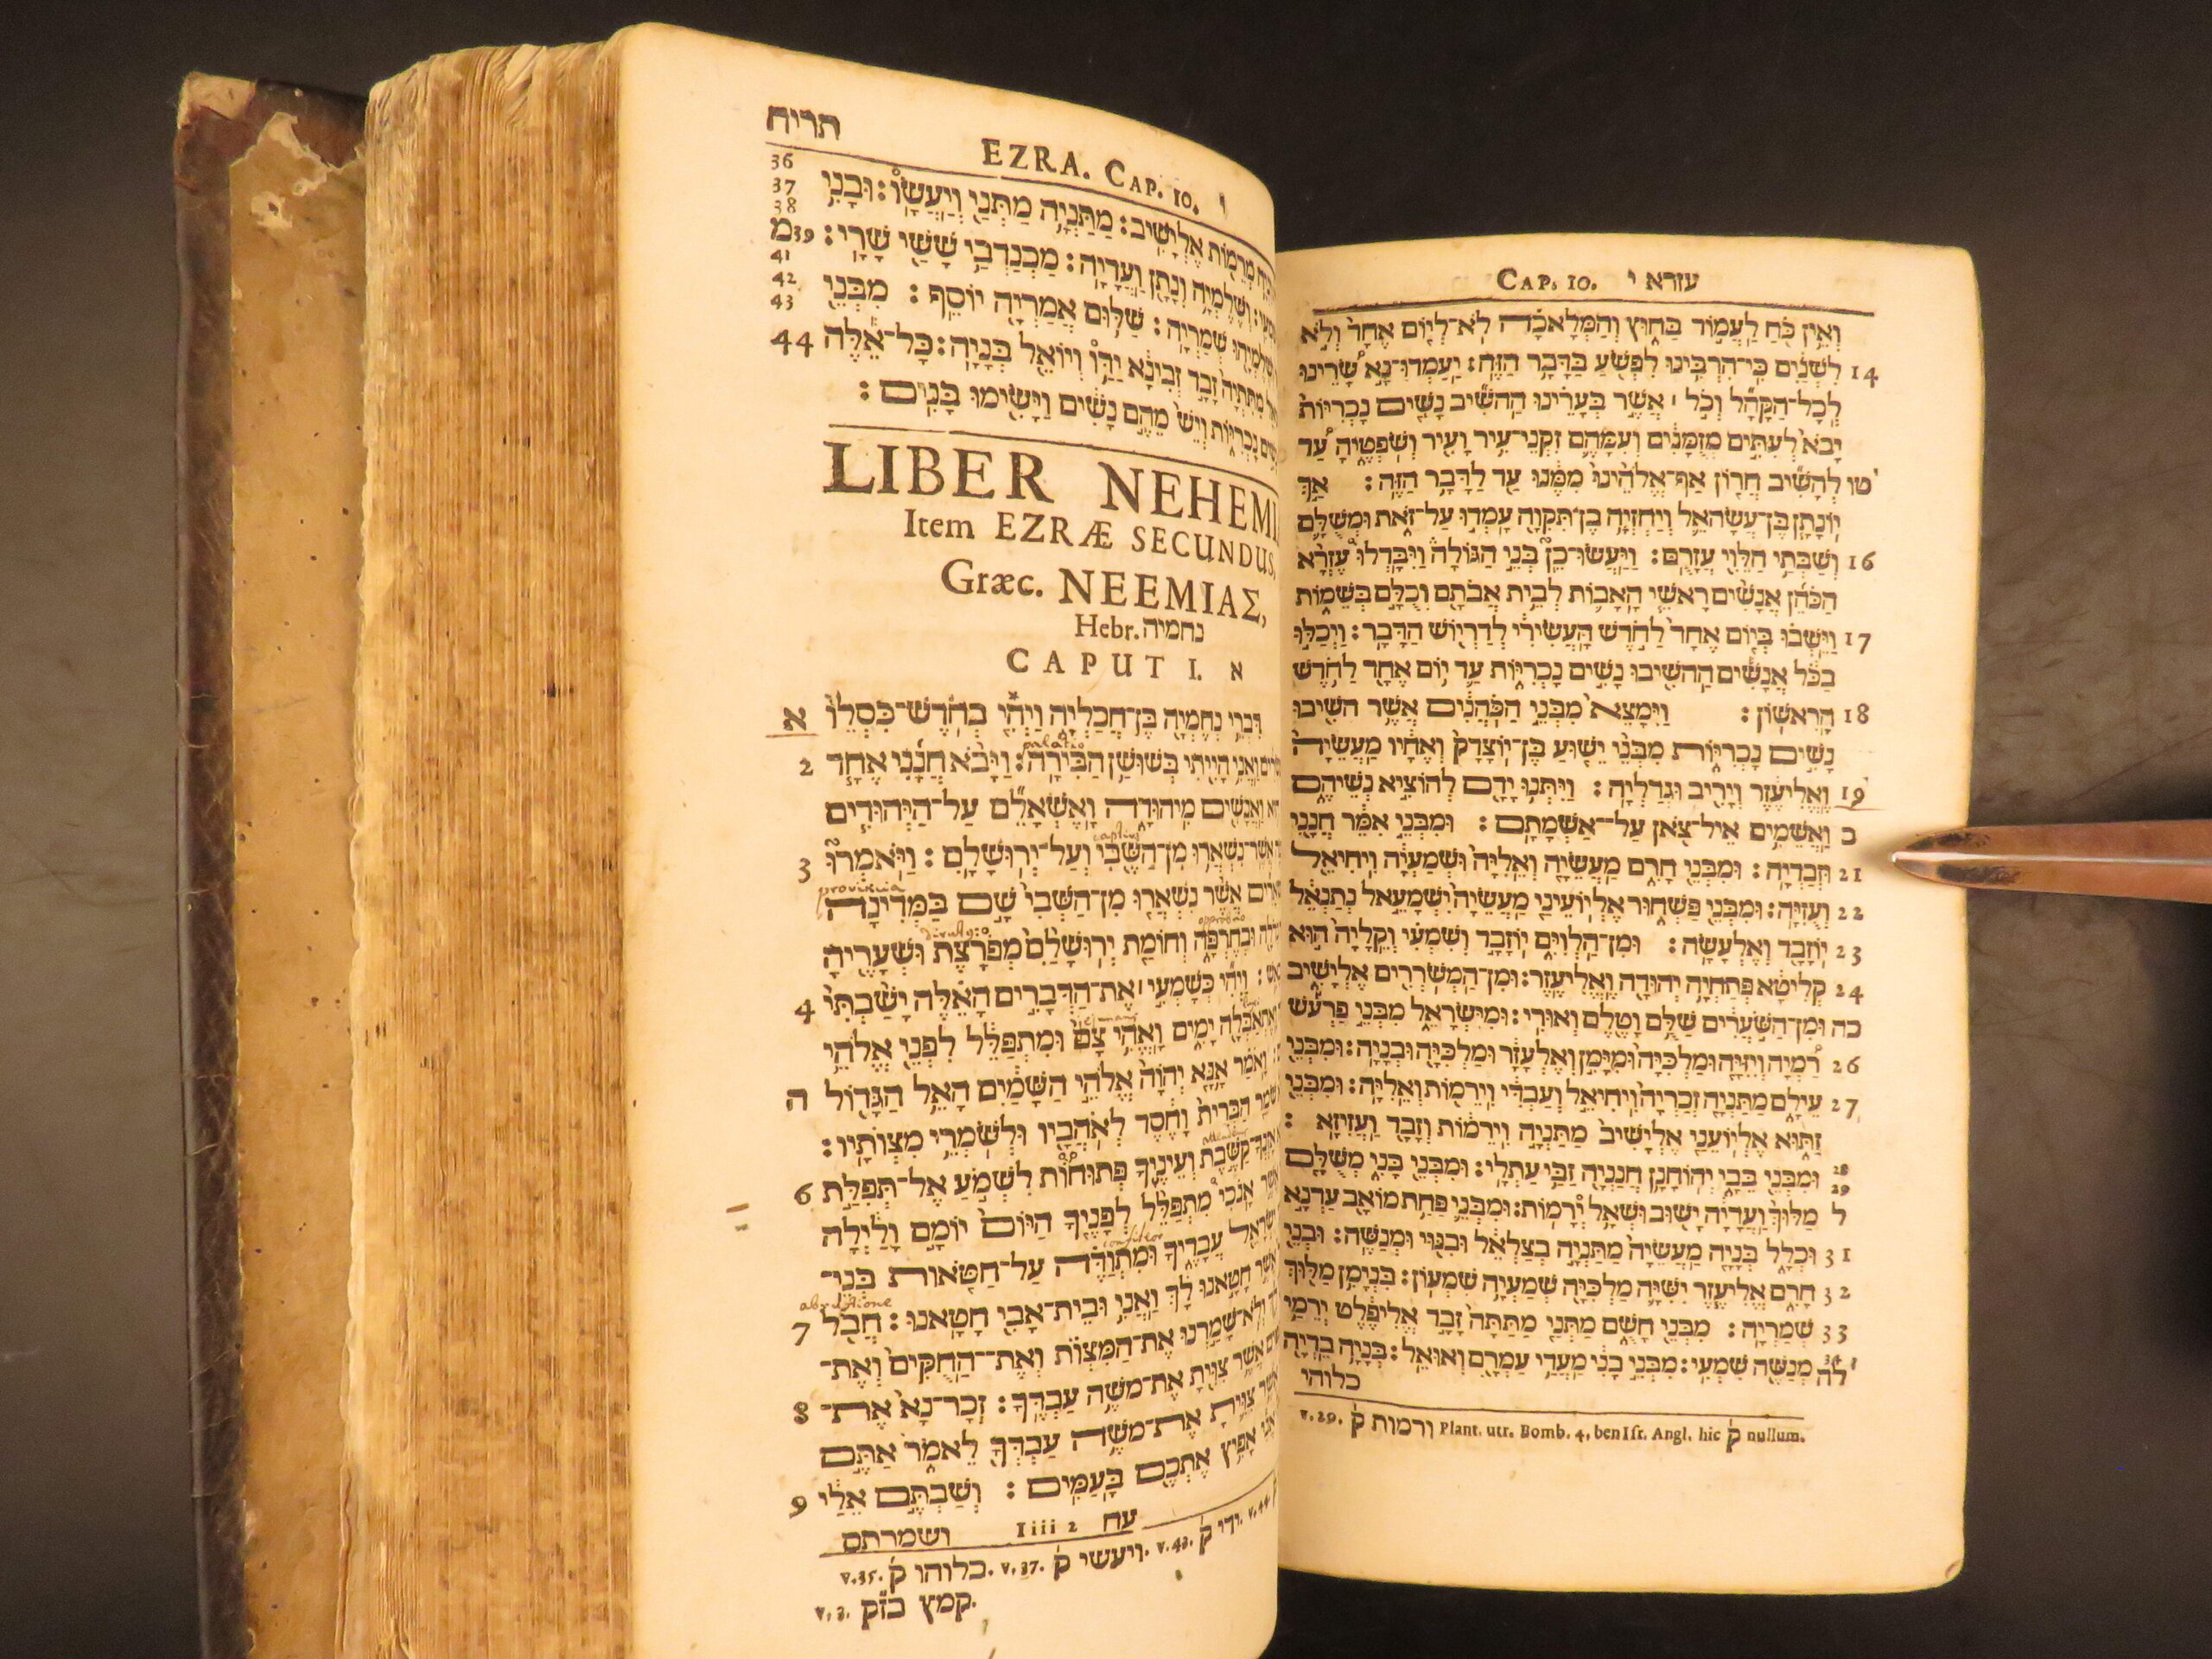 CAP. 10. עזרא י
וְאֵין כֹּחַ לַעֲמוֹד בַּחוּץ וְהַמְּלָאכָה לֹא־לְיוֹם אֶחָד וְלֹא
14 לִשְׁנַיִם כִּי־הִרְבִּינוּ לִפְשֹׁעַ בַּדָּבָר הַזֶּה׃ יַעַמְדוּ־נָא שָׂרֵינוּ
לְכָל־הַקָּהָל וְכֹל ׀ אֲשֶׁר בְּעָרֵינוּ הַהֹשִׁיב נָשִׁים נָכְרִיּוֹת
יָבֹא לְעִתִּים מְזֻמָּנִים וְעִמָּהֶם זִקְנֵי־עִיר וָעִיר וְשֹׁפְטֶיהָ עַד
טו לְהָשִׁיב חֲרוֹן אַף־אֱלֹהֵינוּ מִמֶּנּוּ עַד לַדָּבָר הַזֶּה׃ אַךְ
יוֹנָתָן בֶּן־עֲשָׂהאֵל וְיַחְזְיָה בֶן־תִּקְוָה עָמְדוּ עַל־זֹאת וּמְשֻׁלָּם
16 וְשַׁבְּתַי הַלֵּוִי עֲזָרֻם׃ וַיַּעֲשׂוּ־כֵן בְּנֵי הַגּוֹלָה וַיִּבָּדְלוּ עֶזְרָא
הַכֹּהֵן אֲנָשִׁים רָאשֵׁי הָאָבוֹת לְבֵית אֲבֹתָם וְכֻלָּם בְּשֵׁמוֹת
17 וַיֵּשְׁבוּ בְּיוֹם אֶחָד לַחֹדֶשׁ הָעֲשִׂירִי לְדַרְיוֹשׁ הַדָּבָר׃ וַיְכַלּוּ
בַכֹּל אֲנָשִׁים הַהֹשִׁיבוּ נָשִׁים נָכְרִיּוֹת עַד יוֹם אֶחָד לַחֹדֶשׁ
18 הָרִאשׁוֹן׃ וַיִּמָּצֵא מִבְּנֵי הַכֹּהֲנִים אֲשֶׁר הֹשִׁיבוּ
נָשִׁים נָכְרִיּוֹת מִבְּנֵי יֵשׁוּעַ בֶּן־יוֹצָדָק וְאֶחָיו מַעֲשֵׂיָה
19 וֶאֱלִיעֶזֶר וְיָרִיב וּגְדַלְיָה׃ וַיִּתְּנוּ יָדָם לְהוֹצִיא נְשֵׁיהֶם
כ וַאֲשֵׁמִים אֵיל־צֹאן עַל־אַשְׁמָתָם׃ וּמִבְּנֵי אִמֵּר חֲנָנִי
21 וּזְבַדְיָה׃ וּמִבְּנֵי חָרִם מַעֲשֵׂיָה וְאֵלִיָּה וּשְׁמַעְיָה וִיחִיאֵל
22 וְעֻזִיָּה׃ וּמִבְּנֵי פַּשְׁחוּר אֶלְיוֹעֵינַי מַעֲשֵׂיָה יִשְׁמָעֵאל נְתַנְאֵל
23 יוֹזָבָד וְאֶלְעָשָׂה׃ וּמִן־הַלְוִיִּם יוֹזָבָד וְשִׁמְעִי וְקֵלָיָה הוּא
24 קְלִיטָא פְּתַחְיָה יְהוּדָה וֶאֱלִיעֶזֶר׃ וּמִן־הַמְשֹׁרְרִים אֶלְיָשִׁיב
כה וּמִן־הַשֹּׁעֲרִים שַׁלֻּם וָטֶלֶם וְאוּרִי׃ וּמִיִּשְׂרָאֵל מִבְּנֵי פַרְעֹשׁ
26 רַמְיָה וְיִזִּיָּה וּמַלְכִּיָּה וּמִיָּמִן וְאֶלְעָזָר וּמַלְכִּיָּה וּבְנָיָה׃ וּמִבְּנֵי
27 עֵילָם מַתַּנְיָה זְכַרְיָה וִיחִיאֵל וְעַבְדִּי וִירֵמוֹת וְאֵלִיָּה׃ וּמִבְּנֵי
זַתּוּא אֶלְיוֹעֵנַי אֶלְיָשִׁיב מַתַּנְיָה וִירֵמוֹת וְזָבָד וַעֲזִיזָא׃
28 29 וּמִבְּנֵי בֵּבָי יְהוֹחָנָן חֲנַנְיָה זַבַּי עַתְלָי׃ וּמִבְּנֵי בָּנִי מְשֻׁלָּם
ל מַלּוּךְ וַעֲדָיָה יָשׁוּב וּשְׁאָל יְרָמוֹת׃ וּמִבְּנֵי פַּחַת מוֹאָב עַדְנָא
31 וּכְלָל בְּנָיָה מַעֲשֵׂיָה מַתַּנְיָה בְצַלְאֵל וּבִנּוּי וּמְנַשֶּׁה׃ וּבְנֵי
32 חָרִם אֱלִיעֶזֶר יִשִּׁיָּה מַלְכִּיָּה שְׁמַעְיָה שִׁמְעוֹן׃ בִּנְיָמִן מַלּוּךְ
33 שְׁמַרְיָה׃ מִבְּנֵי חָשֻׁם מַתְּנַי מַתַּתָּה זָבָד אֱלִיפֶלֶט יְרֵמַי
34 לה מְנַשֶּׁה שִׁמְעִי׃ מִבְּנֵי בָנִי מַעֲדַי עַמְרָם וְאוּאֵל׃ בְּנָיָה בֵדְיָה
כלוהי
v. 29. ק̇ ורמות Plant. utr. Bomb. 4, ben Isr. Angl. hic ק̇ nullum.
תריח EZRA. CAP. 10. י
36 37 מְרֵמוֹת אֶלְיָשִׁיב׃ מַתַּנְיָה מַתְּנַי וְיַעֲשָׂו׃ וּבָנִי
38 39 וְשֶׁלֶמְיָה וְנָתָן וַעֲדָיָה׃ מַכְנַדְבַי שָׁשַׁי שָׁרָי׃
מ 41 42 שְׁמַרְיָה׃ שַׁלּוּם אֲמַרְיָה יוֹסֵף׃ מִבְּנֵי
43 מַתִּתְיָה זָבָד זְבִינָא יַדָּו וְיוֹאֵל בְּנָיָה׃ כָּל־אֵלֶּה
44 נָכְרִיּוֹת וְיֵשׁ מֵהֶם נָשִׁים וַיָּשִׂימוּ בָּנִים׃
LIBER NEHEMI
Item EZRÆ SECUNDUS.
Græc. ΝΕΕΜΙΑΣ,
Hebr. נחמיה
CAPUT I. א
א דִּבְרֵי נְחֶמְיָה בֶּן־חֲכַלְיָה וַיְהִי בְחֹדֶשׁ־כִּסְלֵו
palatio
2 וַאֲנִי הָיִיתִי בְּשׁוּשַׁן הַבִּירָה׃ וַיָּבֹא חֲנָנִי אֶחָד
וַאֲנָשִׁים מִיהוּדָה וָאֶשְׁאָלֵם עַל־הַיְּהוּדִים
captiv
3 אֲשֶׁר־נִשְׁאֲרוּ מִן־הַשֶּׁבִי וְעַל־יְרוּשָׁלִָם׃ וַיֹּאמְרוּ
provincia
אֲשֶׁר נִשְׁאֲרוּ מִן־הַשְּׁבִי שָׁם בַּמְּדִינָה
opprobrio
וּבְחֶרְפָּה וְחוֹמַת יְרוּשָׁלִַם מְפֹרָצֶת וּשְׁעָרֶיהָ
4 וַיְהִי כְּשָׁמְעִי ׀ אֶת־הַדְּבָרִים הָאֵלֶּה יָשַׁבְתִּי
יָמִים וָאֱהִי צָם וּמִתְפַּלֵּל לִפְנֵי אֱלֹהֵי
ה וָאֹמַר אָנָּא יְהוָה אֱלֹהֵי הַשָּׁמַיִם הָאֵל הַגָּדוֹל
הַבְּרִית וָחֶסֶד לְאֹהֲבָיו וּלְשֹׁמְרֵי מִצְוֹתָיו׃
6 קַשֶּׁבֶת וְעֵינֶיךָ פְתוּחוֹת לִשְׁמֹעַ אֶל־תְּפִלַּת
אֲשֶׁר אָנֹכִי מִתְפַּלֵּל לְפָנֶיךָ הַיּוֹם יוֹמָם וָלַיְלָה
confiteor
עֲבָדֶיךָ וּמִתְוַדֶּה עַל־חַטֹּאות בְּנֵי־
7 חָטָאנוּ לָךְ וַאֲנִי וּבֵית־אָבִי חָטָאנוּ׃ חֲבֹל
וְלֹא־שָׁמַרְנוּ אֶת־הַמִּצְוֹת וְאֶת־הַחֻקִּים וְאֶת־
8 אֲשֶׁר צִוִּיתָ אֶת־מֹשֶׁה עַבְדֶּךָ׃ זְכָר־נָא אֶת־
צִוִּיתָ אֶת־מֹשֶׁה עַבְדְּךָ לֵאמֹר אַתֶּם
9 אָפִיץ אֶתְכֶם בָּעַמִּים׃ וְשַׁבְתֶּם אֵלַי
עח Iiii 2 ושמרתם
v. 35. ק̇ כלוהו. v. 37. ק̇ ויעשי. v. 43. ק̇ ידי. v. 44.
v. 3. קמץ בז̇ק.